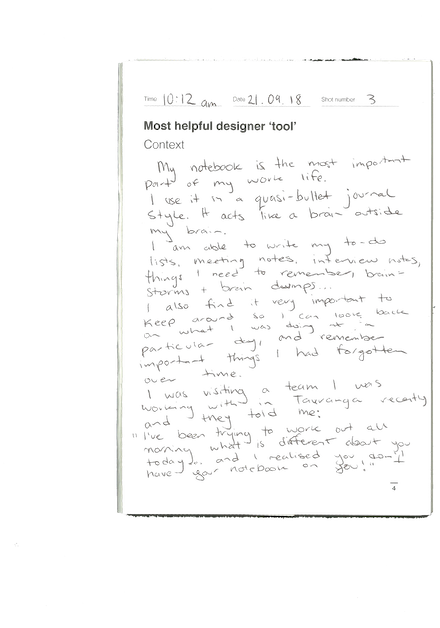 Time 10:12 am Date 21.09.18 Shot number 3
Most helpful designer 'tool'
Context
My notebook is the most important
part of my work life.
I use it in a quasi-bullet journal
style. It acts like a brain outside
my brain.
I am able to write my to-do
lists, meeting notes, interview notes,
things I need to remember, brain-
storms + brain dumps...
I also find it very important to
keep around so I can look back
on what I was doing in
particular day, and remember
important things I had forgotten
over time.
I was visiting a team I was
working with in Tauranga recently
and they told me:
"I've been trying to work out all
morning what is different about you
today... and I realised you don't
have your notebook on you!"
4